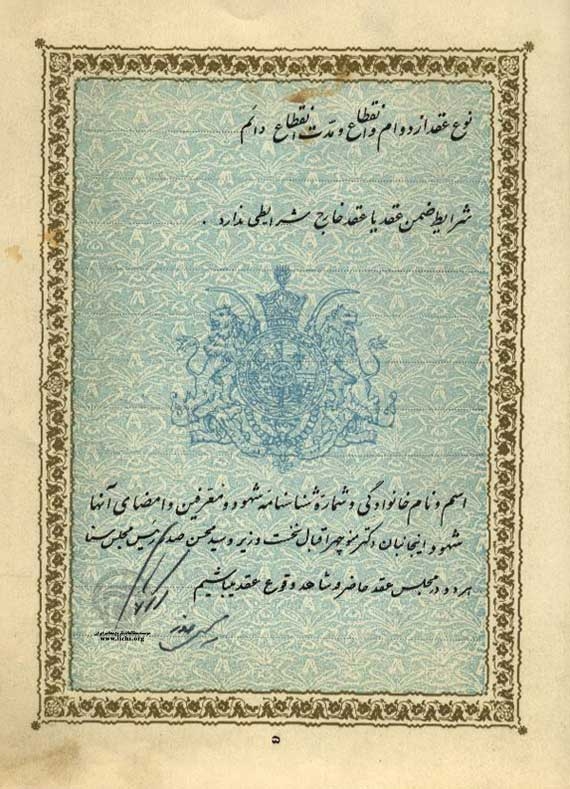 نوع عقد از دوام و انقطاع و مدت انقطاع دائم
شرایط ضمن عقد یا عقد خارج شرایطی ندارد .
اسم و نام خانوادگی و شماره شناسنامه شهود و معرفین و امضای آنها
شهود اینجانبان دکتر منوچهر اقبال نخست وزیر و سید محسن صدر رئیس مجلس سنا
هر دو در مجلس عقد حاضر و شاهد وقوع عقد میباشیم
www.iichs.org
۵